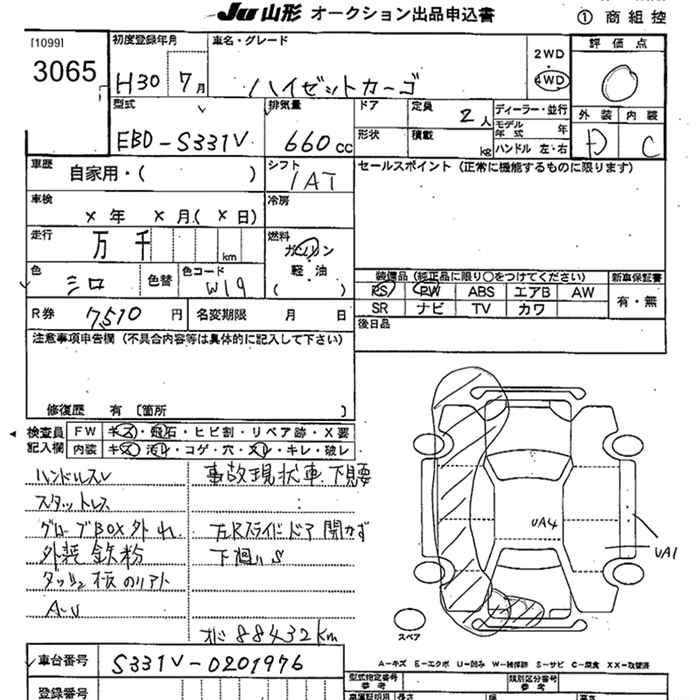 JU 山形 オークション出品申込書
① 商組控
[1099]
3065
初度登録年月
H30 7月
車名・グレード
ハイゼットカーゴ
2WD
4WD
評価点
0
型式
EBD-S331V
排気量
660 cc
ドア
形状
定員
2人
積載
kg
ディーラー・並行
モデル年式 年
ハンドル 左・右
外装 内装
D C
車歴
自家用・( )
シフト
IAT
セールスポイント(正常に機能するものに限ります)
車検
× 年 × 月( × 日)
冷房
走行
万 千
km
燃料
ガソリン
軽・油
( )
色
シロ
色替
色コード
W19
装備品(純正品に限り○をつけてください)
新車保証書
PS PW ABS エアB AW
SR ナビ TV カワ
有・無
R券 7510 円
名変期限 月 日
後日品
注意事項申告欄(不具合内容等は具体的に記入して下さい)
修復歴 有 [箇所 ]
検査員記入欄
FW キズ・飛石・ヒビ割・リペア跡・X要
内装 キズ・汚れ・コゲ・穴・スレ・キレ・破レ
ハンドルスレ
スタットレス
グローブBOX外れ
外装鉄粉
ダッシュ板のリアト
A-U
事故現状車 下見要
左Rスライドドア開かず
下廻りS
88432km
UA4
UA1
スペア
A-キズ E-エクボ U-凹み W-補修跡 S-サビ C-腐食 XX-取替済
車台番号 S331V-0201976
登録番号
型式指定番号
参考
類別区分番号
参考
長さ
幅
高さ